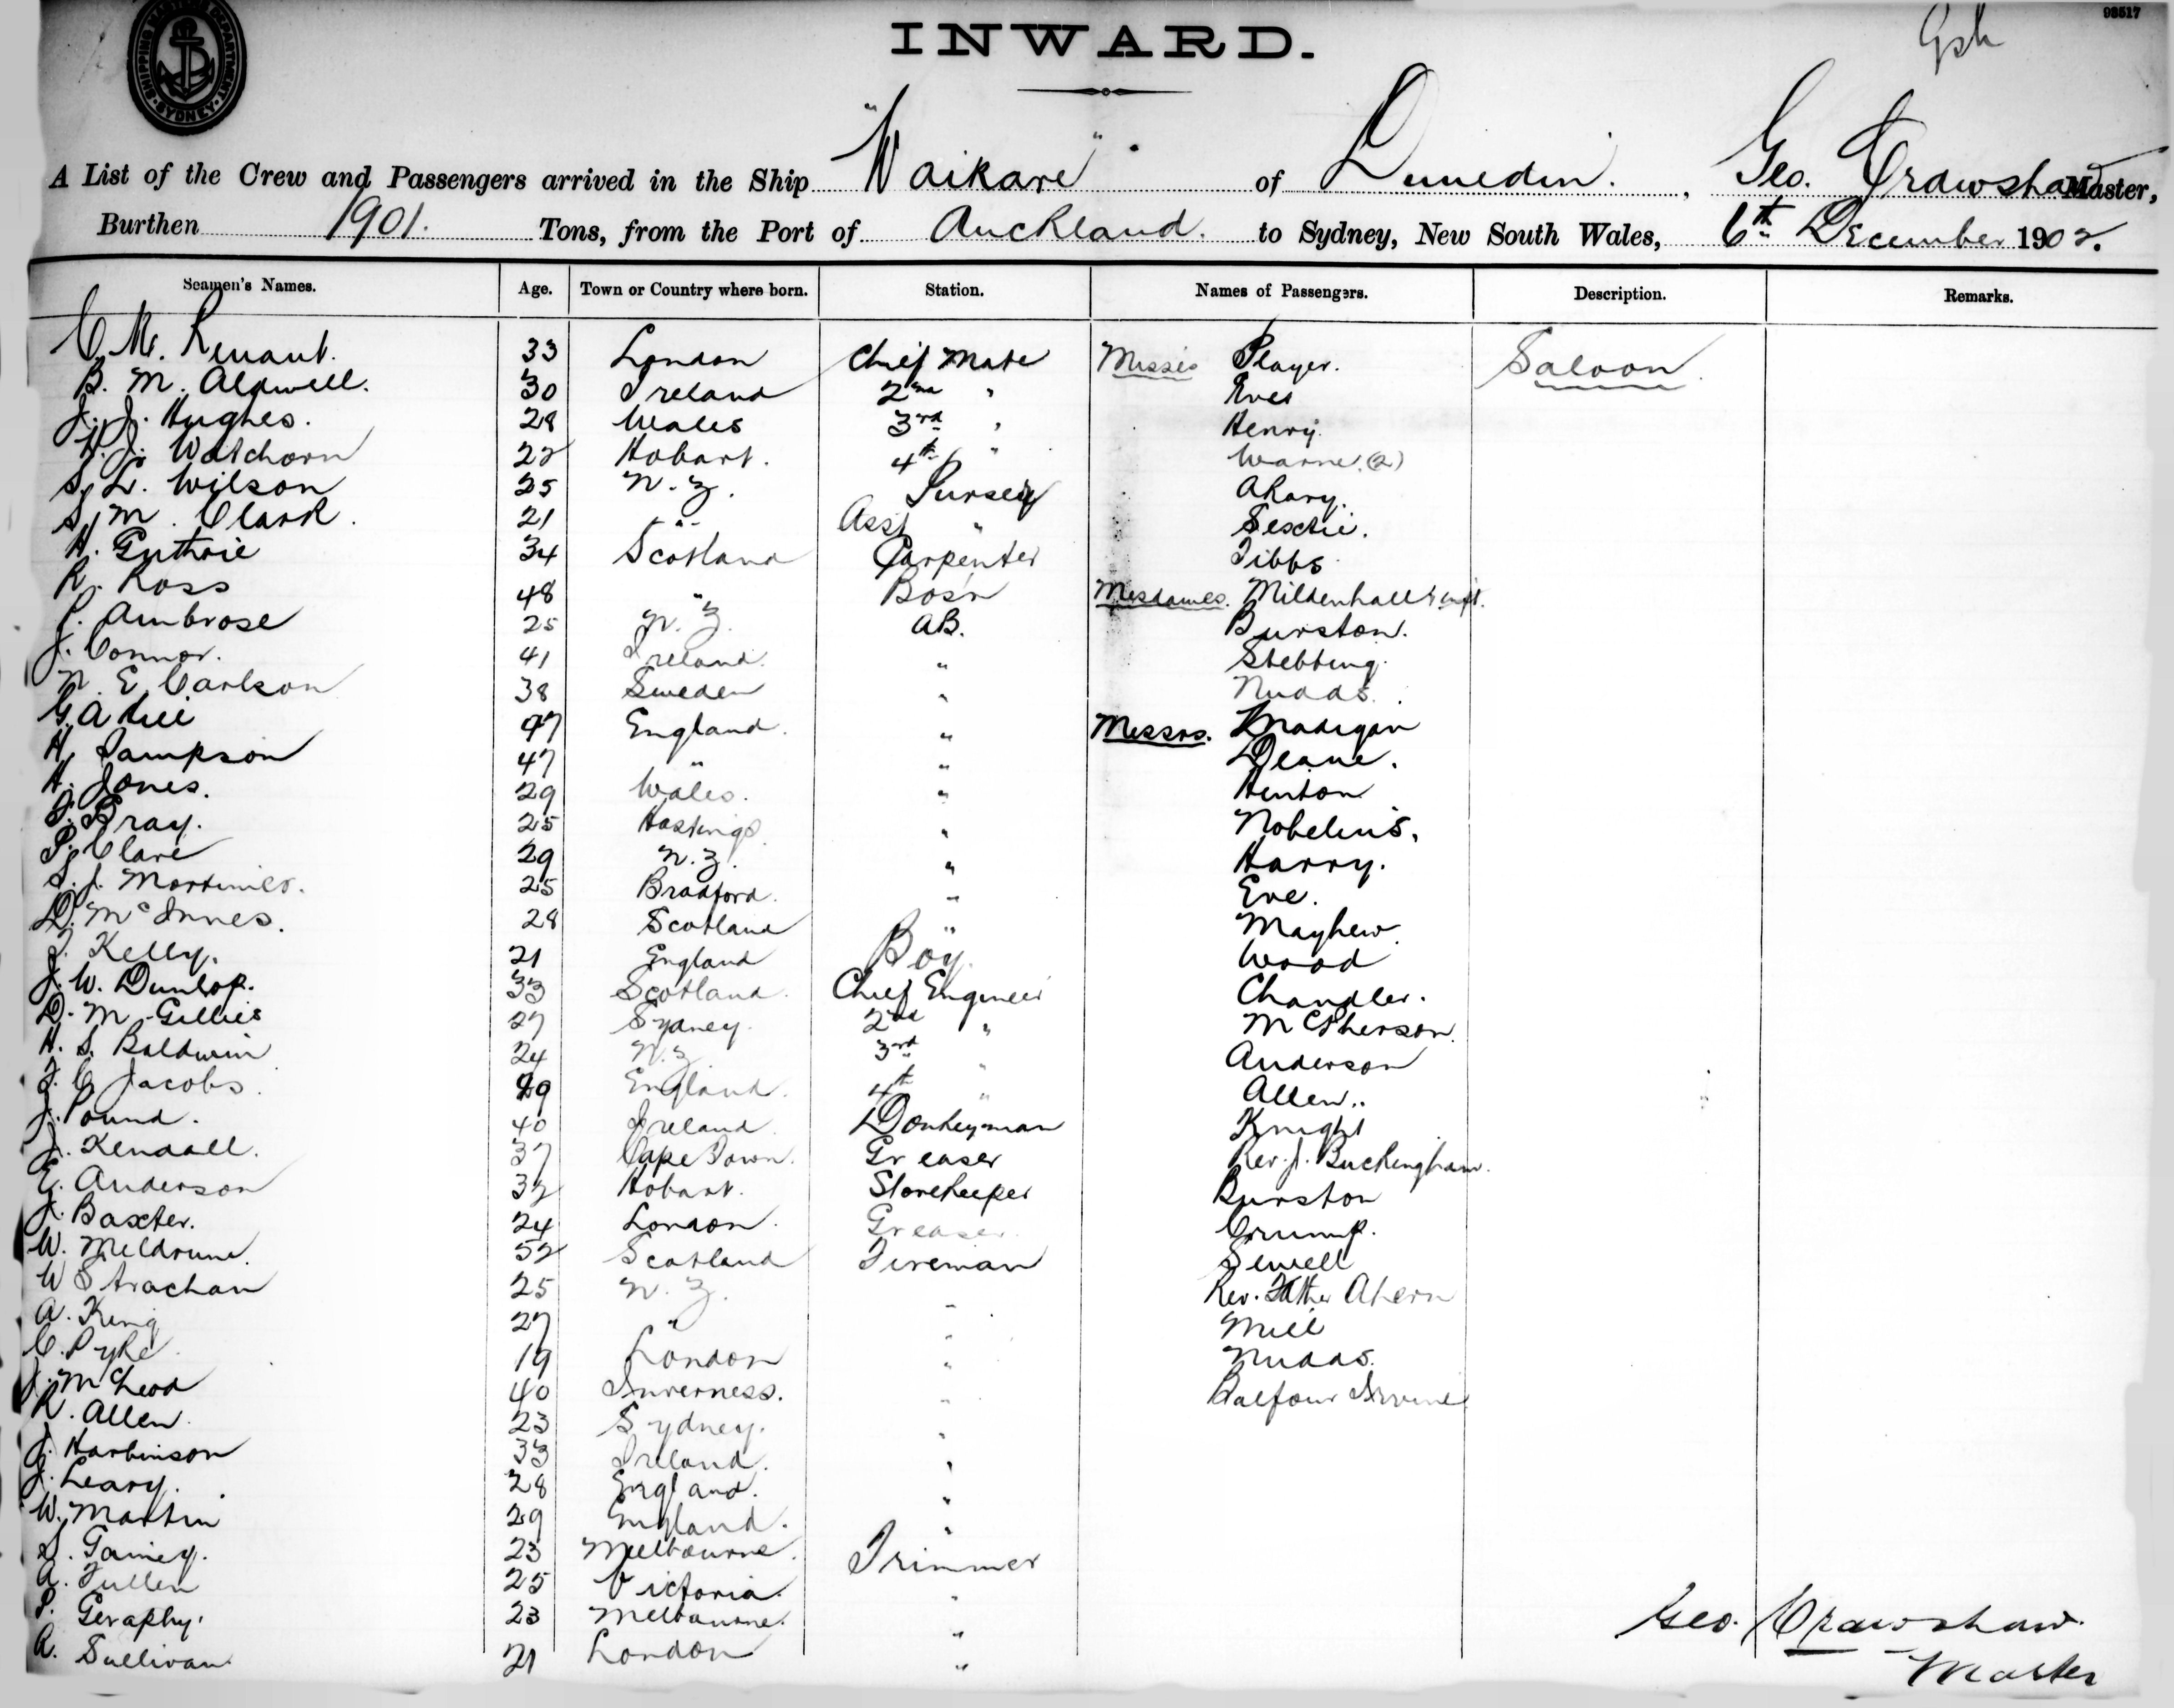 98517
INWARD.
SHIPPING MASTERS DEPARTMENT SYDNEY
A List of the Crew and Passengers arrived in the Ship "Waikare" of Dunedin. , Geo. Crawshaw Master,
Burthen 1901. Tons, from the Port of Auckland. to Sydney, New South Wales, 6th December 1902.
Seamen's Names. Age. Town or Country where born. Station. Names of Passengers. Description. Remarks.
C. M. 33 London Chief Mate Misses Player. Saloon
B. M. Aldwell. 30 Ireland 2nd " Eves
J. J. Hughes. 28 Wales 3rd " Henry.
H. J. Watchorn 22 Hobart. 4th " Warne (2)
S. L. Wilson 25 N.Z. Purser
S. M. Clark. 21 " Asst "
H. Guthrie 34 Scotland Carpenter Tibbs
R. Ross 48 " Bos'n Mesdames. Mildenhall & inft.
P. Ambrose 25 N.Z. AB. Burston.
J. Connor. 41 Ireland. " Stebbing.
N. E. Carlson 38 Sweden " Nudds.
G. A. 47 England. " Messrs. Madigan
H. Sampson 47 " " Deane.
H. Jones. 29 Wales. " Henton
F. Bray. 25 Hastings. " Nobelius.
P. Clare 29 N.Z. " Harry.
S. J. Mortimer. 25 Bradford. " Eve.
D. McInnes. 28 Scotland " Mayhew.
J. Kelly. 21 England Boy. Wood
J. W. Dunlop. 33 Scotland. Chief Engineer Chandler.
D. M. Gillies 27 Sydney. 2nd " McPherson.
H. S. Baldwin 24 N.Z. 3rd " Anderson
J. C. Jacobs 29 England. 4th " Allen..
J. Pound. 40 Ireland. Donkeyman Knight
J. Kendall. 37 Cape Town. Greaser Rev. J. Buckingham.
E. Anderson 32 Hobart. Storekeeper Burston
J. Baxter. 24 London. Greaser. Crump.
W. Meldrum. 52 Scotland Fireman Sewell
W Strachan 25 N.Z. " Rev. Father Ahern
A. King 27 " " Mill
C. Pyke 19 London " Nudds.
J. McLeod 40 Inverness. " Balfour Irvine
R. Allen. 23 Sydney. "
J. Harbinson 33 Ireland. "
J. Leary. 28 England. "
W. Martin 29 England. "
S. 23 Melbourne. Trimmer
A. Fullen 25 Victoria. "
P. Geraphy. 23 Melbourne. "
A. Sullivan 21 London "
Geo. Crawshaw.
Master